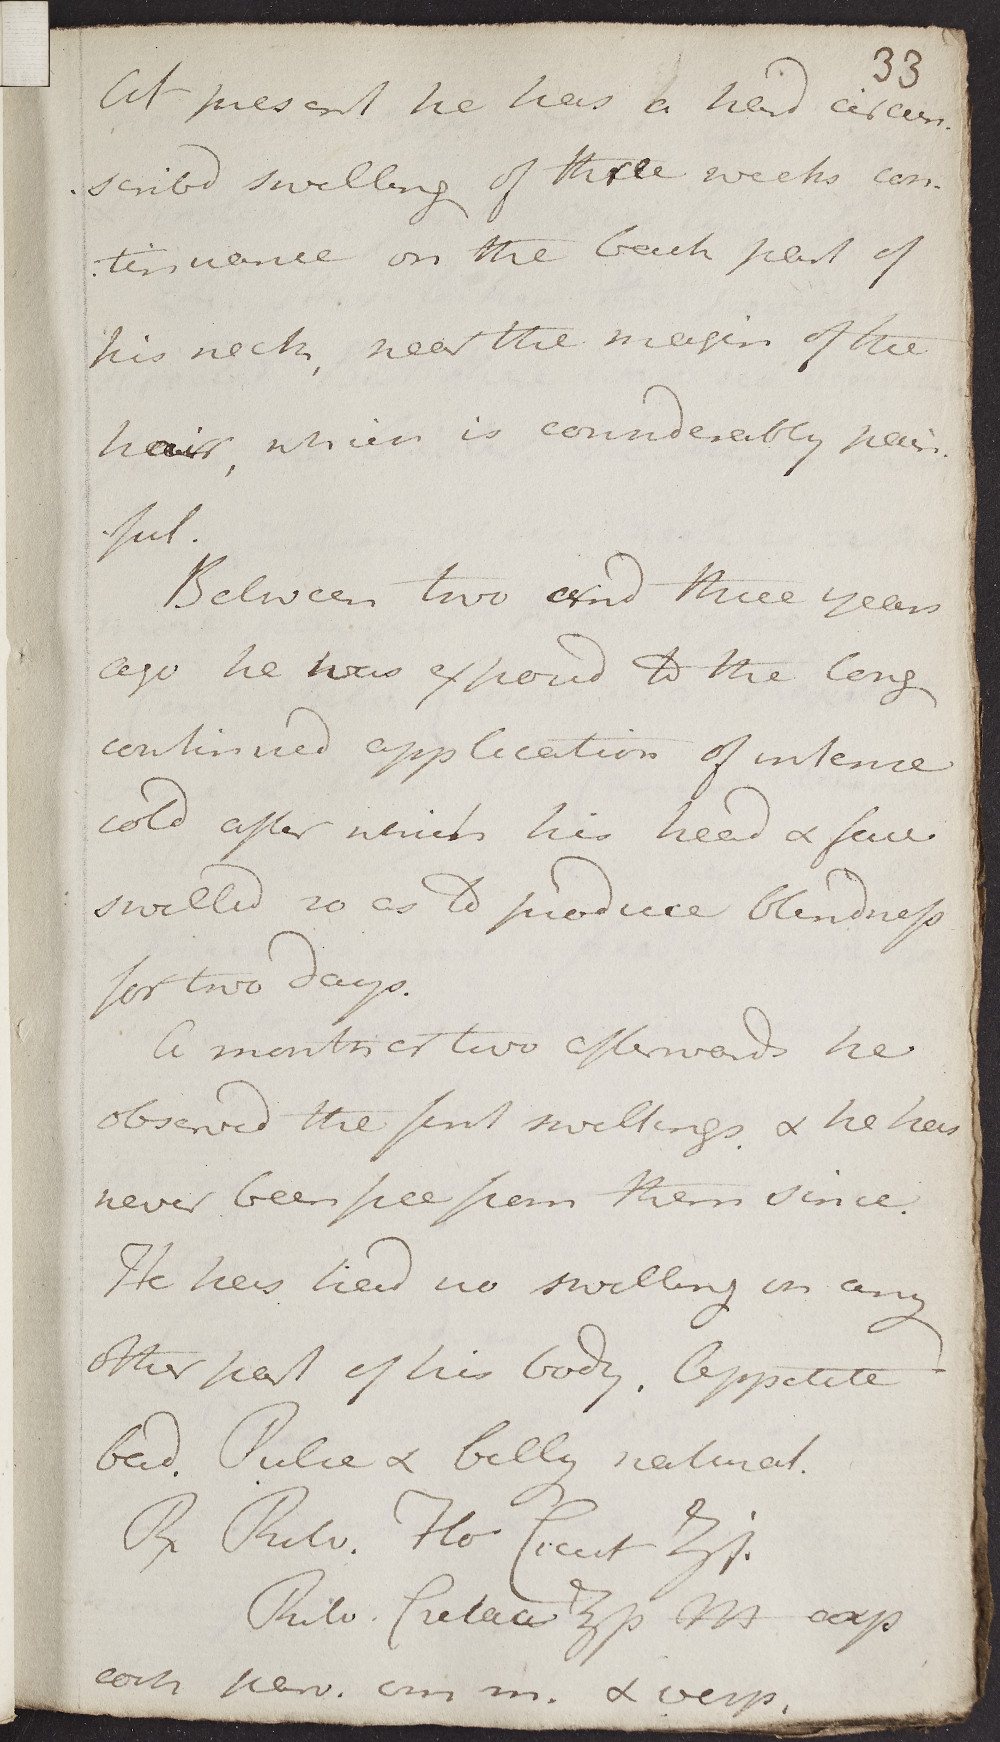 33
At present he has a hard circum-
-scribd swelling of three weeks con-
-tinuance on the back part of
his neck, near the margin of the
hair, which is considerably pain-
-ful.
Between two and three years
ago he was exposed to the long
continued application of intense
cold after which his head & face
swelled so as to produce blindness
for two days.
A month or two afterwards he
observed the first swellings, & he has
never been free from them since.
He has had no swelling on any
other part of his body. Appetite
bad. Pulse & belly natural.
℞ Pulv. Flo Cicut ℥j.
Pulv. Cretac ℥ß M cap
coch parv. om m. & vesp.